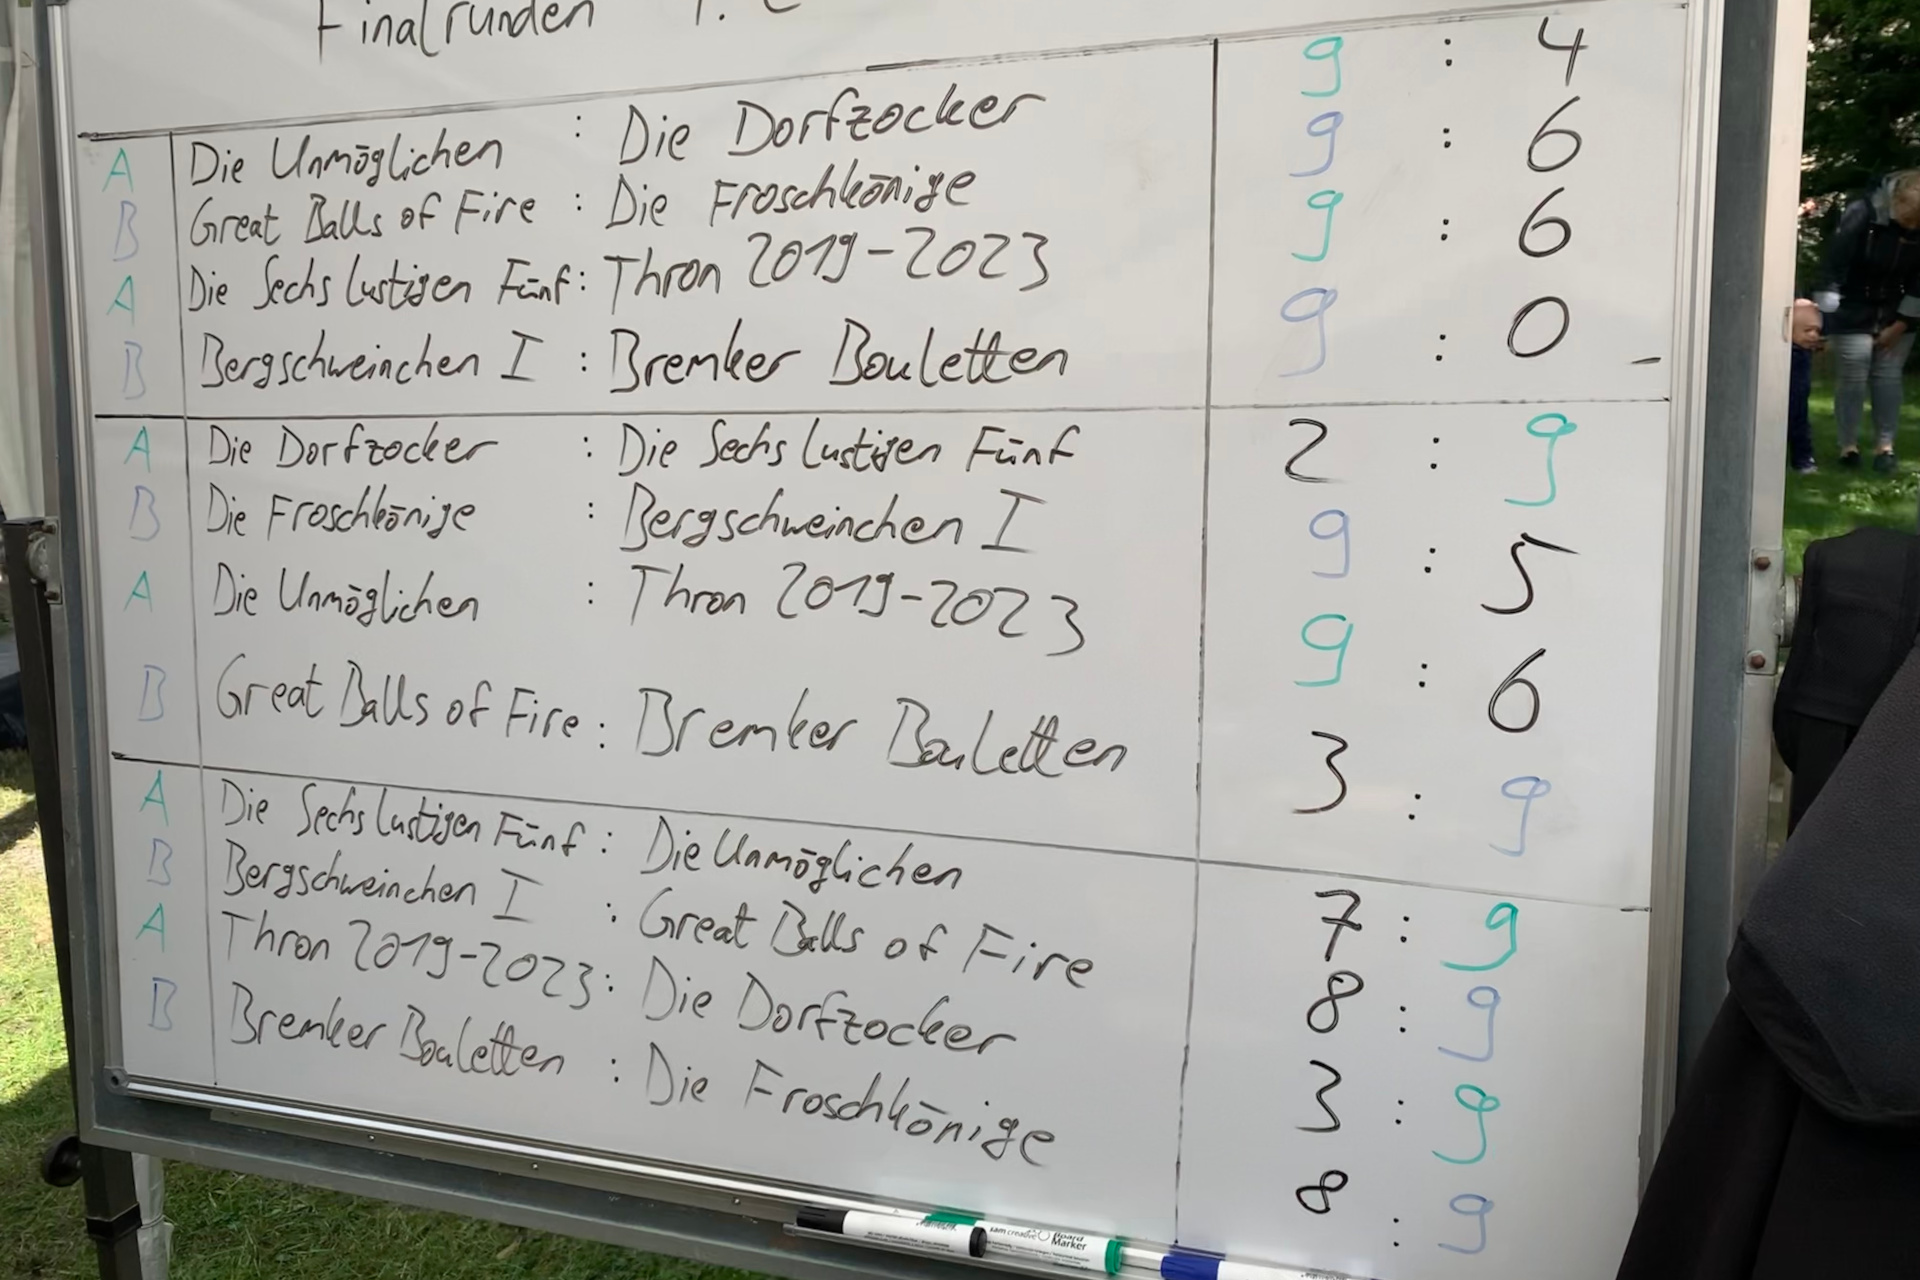 Finalrunden
A Die Unmöglichen : Die Dorfzocker 9 : 4
B Great Balls of Fire : Die Froschkönige 9 : 6
A Die Sechs lustigen Fünf : Thron 2019-2023 9 : 6
B Bergschweinchen I : Bremker Bouletten 9 : 0
A Die Dorfzocker : Die Sechs lustigen Fünf 2 : 9
B Die Froschkönige : Bergschweinchen I 9 : 5
A Die Unmöglichen : Thron 2019-2023 9 : 6
B Great Balls of Fire : Bremker Bouletten 3 : 9
A Die Sechs lustigen Fünf : Die Unmöglichen 7 : 9
B Bergschweinchen I : Great Balls of Fire 8 : 9
A Thron 2019-2023 : Die Dorfzocker 3 : 9
B Bremker Bouletten : Die Froschkönige 8 : 9
sam creative Board Marker